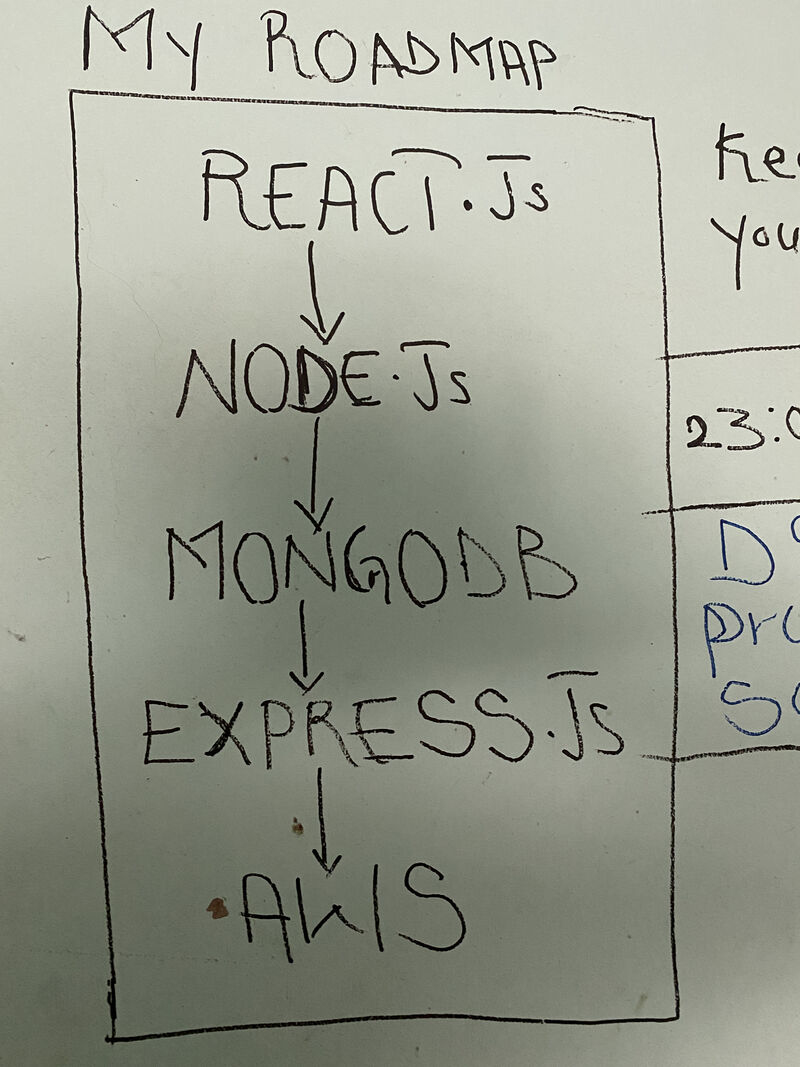 MY ROADMAP
REACT.Js
NODE.Js
MONGODB
EXPRESS.Js
AWS
you
23: